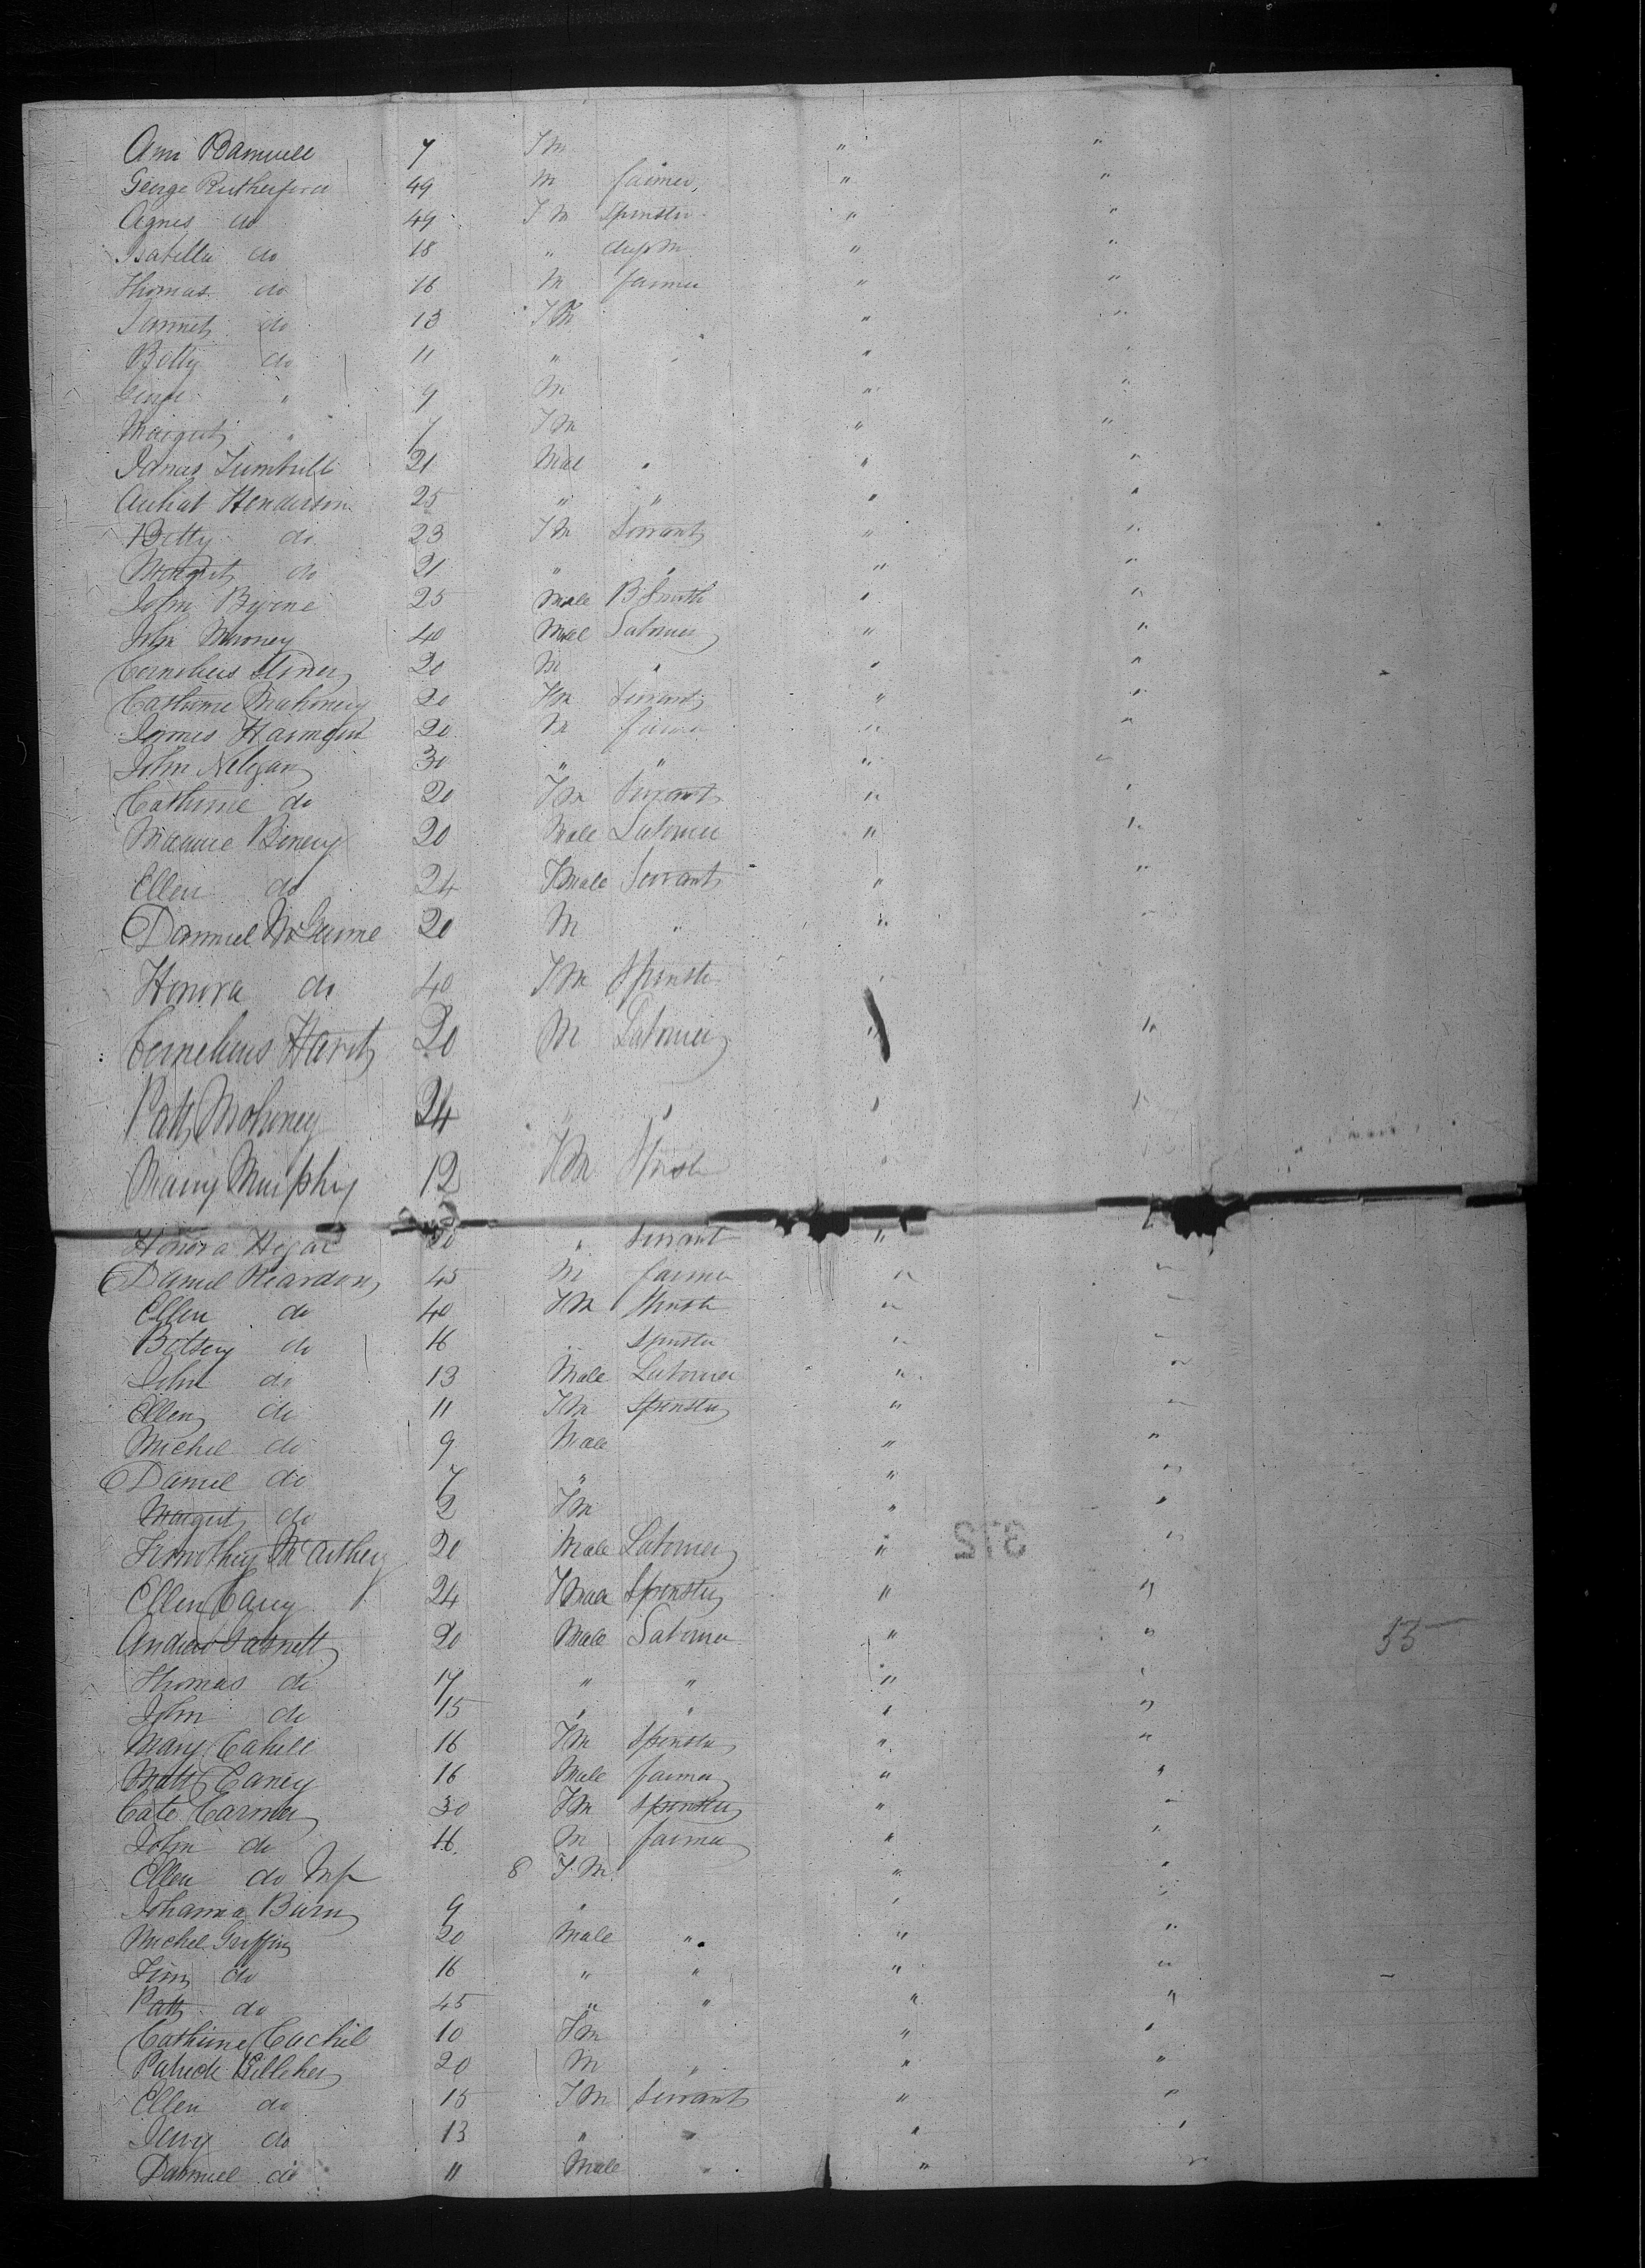 Ann Barnwell 7 Fm " "
George Rutherford 49 m farmer " "
Agnes do 49 Fm Spinster " "
Isabella do 18 " " "
Thomas do 16 m farmer " "
Jannet do 13 Fm " "
Betty do 11 " " "
George " 9 m " "
Margret " 7 Fm " "
James Turnbull 21 Male " " "
Henderson 25 " " " "
Betty do 23 Fm Servant " "
Margret do 21 " " " "
John Byrne 25 Male B Smith " "
John Mahoney 40 Male Labourer " "
Cornelius 20 m " " "
Catherine Mahoney 20 Fm Servant " "
James 20 m farmer " "
John Neligan 30 " " " "
Catherine do 20 Fm Servant " "
20 Male Labourer " "
Ellen do 24 Fmale Servant " "
Danniel 20 m " " "
Honora do 40 Fm Spinster " "
Cornelius Hart 20 m Labourer " "
Patt Mahoney 24 " " " "
Mary Murphy 12 Fm Spinster "
Honora Hegar 20 " Servant " "
Daniel Reardon 45 m farmer " "
Ellen do 40 Fm Spinster " "
Betsey do 16 " Spinster " "
John do 13 Male Labourer " "
Ellen do 11 Fm Spinster " "
Michel do 9 Male " "
Daniel do 7 " " "
Margret do 2 Fm " "
Timothy McCarthey 20 Male Labourer " "
Ellen Carey 24 Fmale Spinster " "
Andrew 20 Male Labourer " " 53
Thomas do 17 " " " "
John do 15 " " " "
Mary Cahill 16 Fm Spinster " "
Matt Carney 16 Male farmer " "
Cate 30 Fm Spinster " "
John do 16 m farmer " "
Ellen do Inf 8 Fm " "
Johanna Burn 9 " " "
Michel Griffin 20 Male " " "
Tim do 16 " " " "
Patt do 45 " " " "
Catherine Cachil 10 Fm " "
Patrick Killeher 20 m " " "
Ellen do 15 Fm Servant " "
Jerry do 13 " " " "
Danniel do 11 Male " " "
312